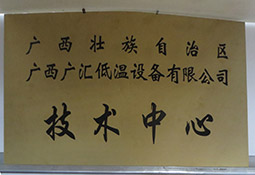 广西壮族自治区
广西广汇低温设备有限公司
技术中心